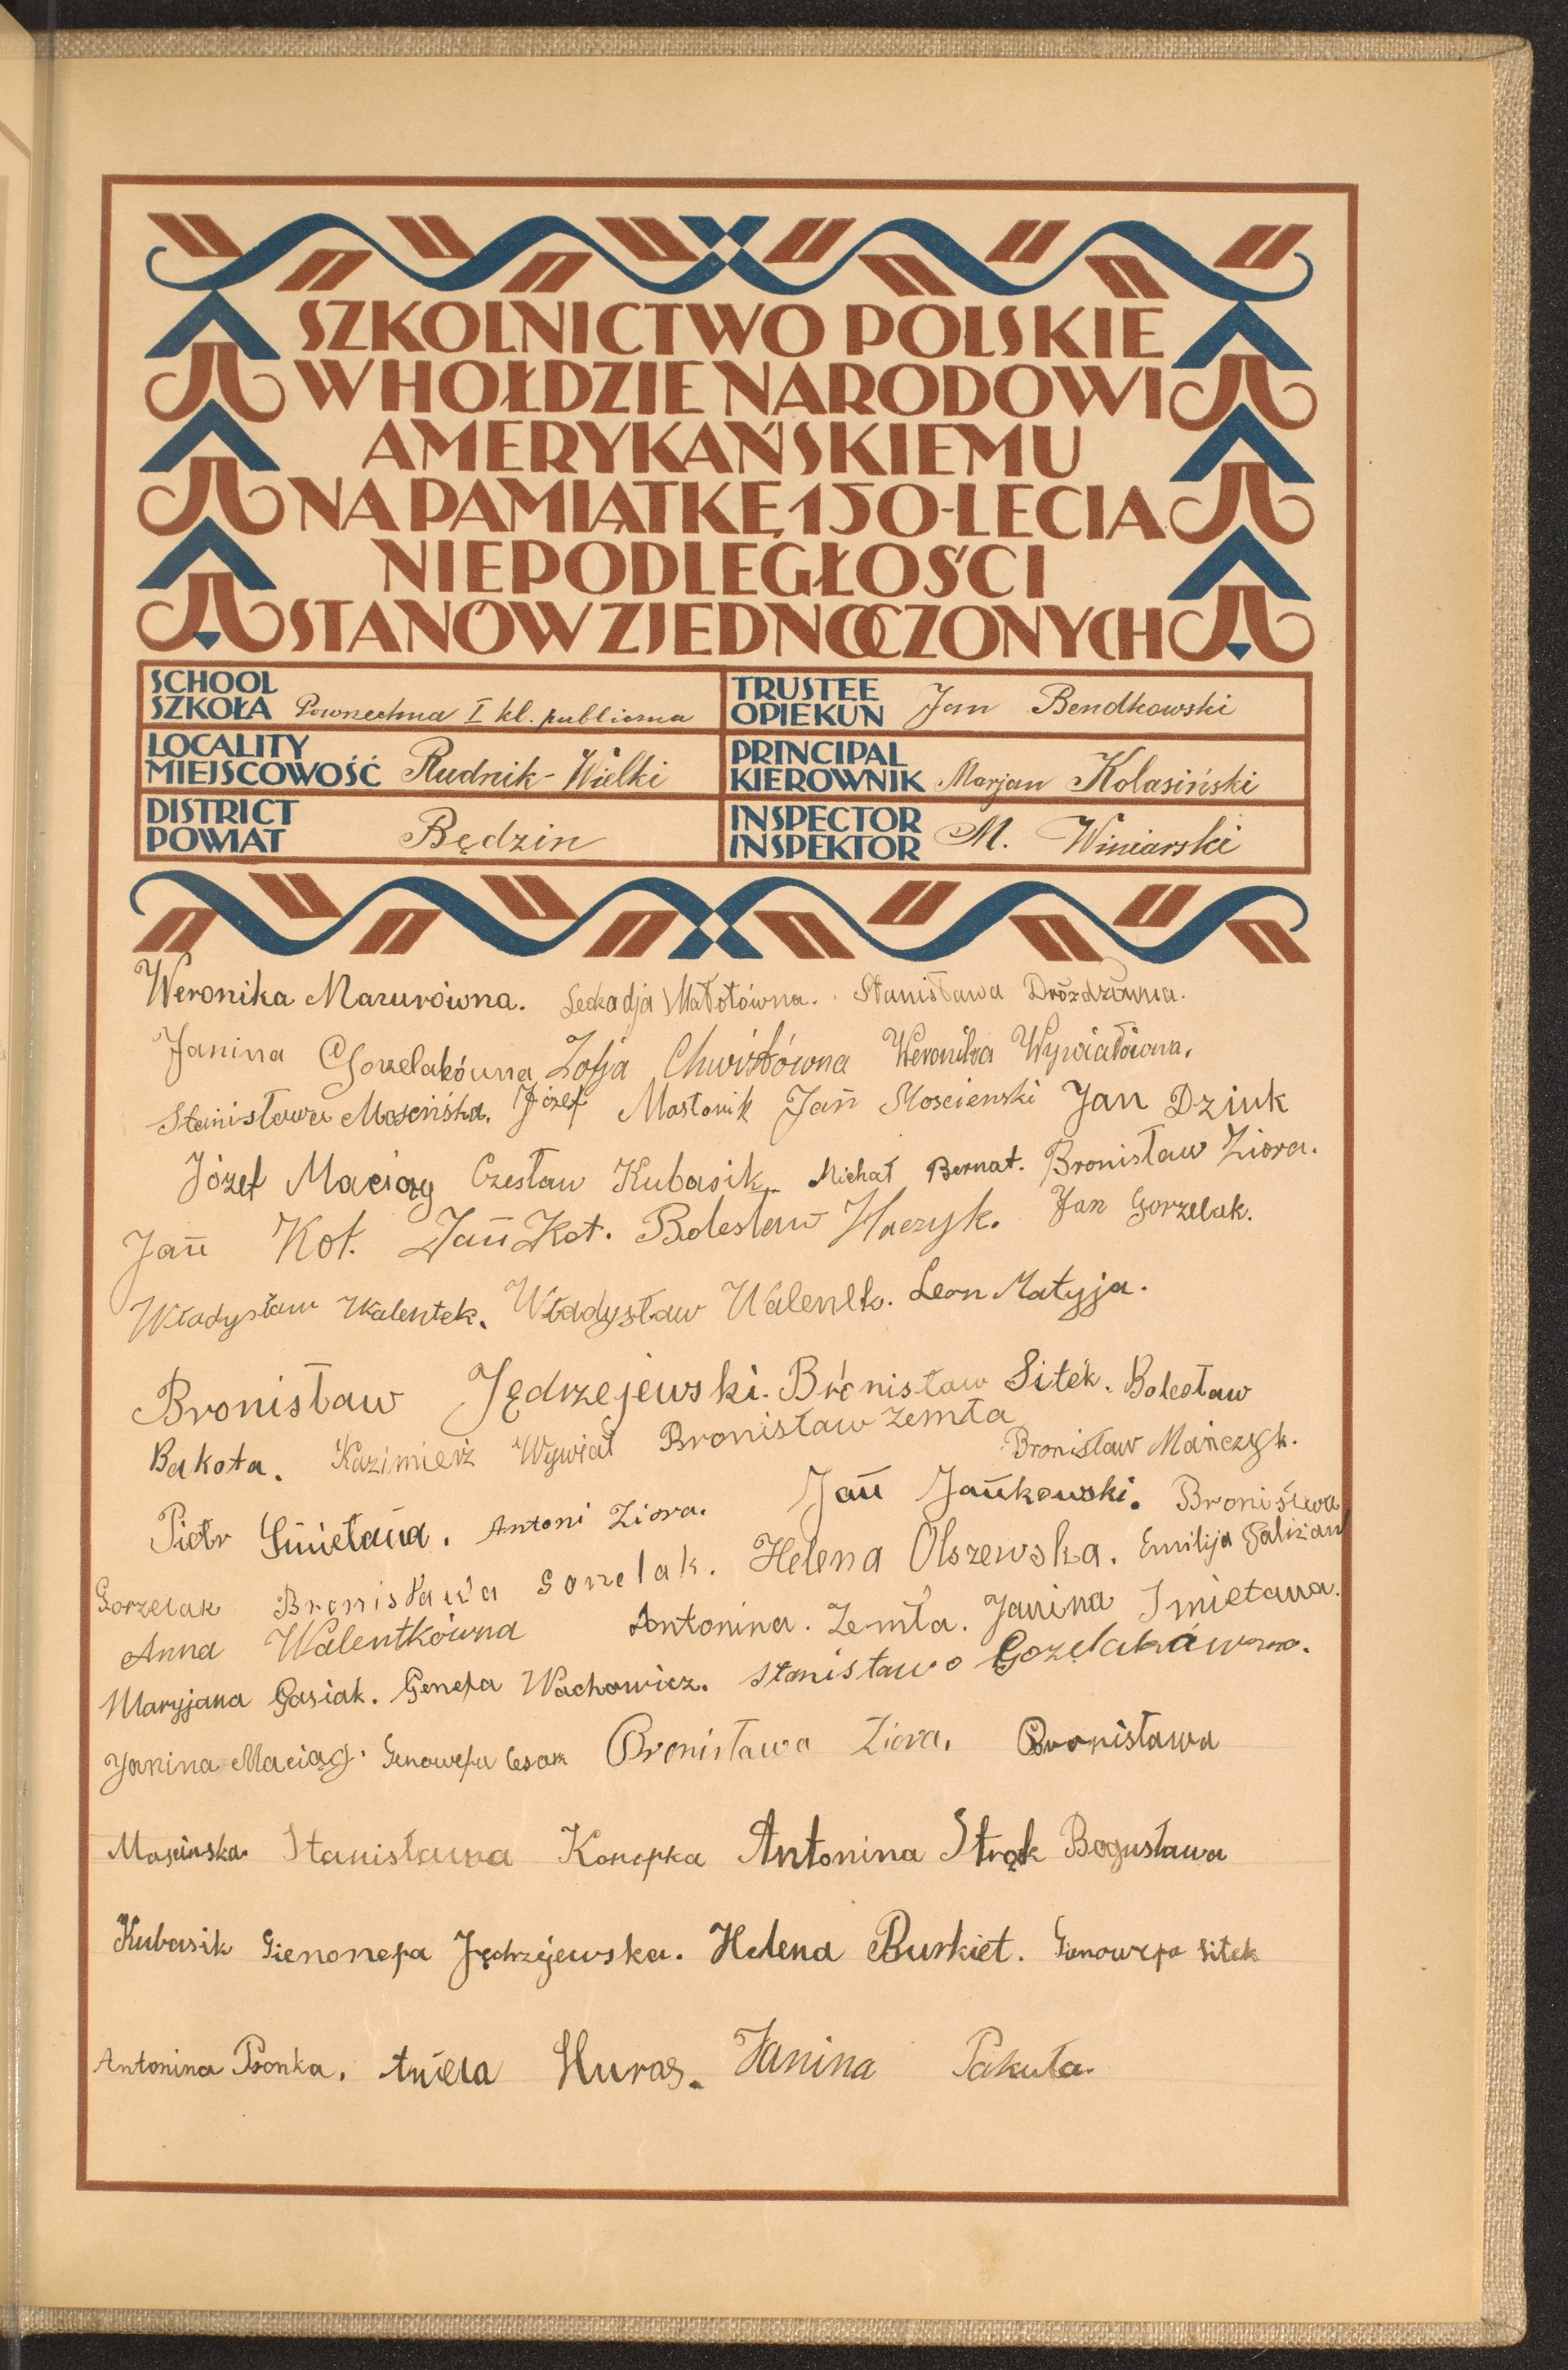 SZKOLNICTWO POLSKIE
W HOŁDZIE NARODOWI
AMERYKAŃSKIEMU
NA PAMIĄTKĘ 150-LECIA
NIEPODLEGŁOŚCI
STANÓW ZJEDNOCZONYCH
SCHOOL
SZKOŁA Powszechna I kl. publiczna
TRUSTEE
OPIEKUN Jan Bendkowski
LOCALITY
MIEJSCOWOŚĆ Rudnik-Wielki
PRINCIPAL
KIEROWNIK Marjan Kolasiński
DISTRICT
POWIAT Będzin
INSPECTOR
INSPEKTOR M. Winiarski
Weronika Mazurówna. Leokadja Małotówna. Stanisława Dróżdżówna.
Janina Gorzelakówna Zofja Chwistówna Weronika Wywiałówna,
Stanisława Mosińska. Józef Mastonik Jan Mościenski Jan Dziuk
Józef Maciąg Czesław Kubasik Michał Bernat. Bronisław Ziora.
Jan Kot. Jan Kot. Bolesław Haczyk. Jan Gorzelak.
Władysław Walentek. Władysław Walentk. Leon Matyja.
Bronisław Jędrzejewski. Bronisław Sitek. Bolesław
Bakota. Kazimierz Wywiał Bronisław Zemła
Bronisław Mańczyk.
Piotr Śmietana. Antoni Ziora. Jan Jankowski. Bronisława
Gorzelak Bronisława Gorzelak. Helena Olszewska. Emilija
Anna Walentkówna Antonina. Zemła. Janina Smietana.
Maryjana Gasiak. Genefa Wachowicz. Stanisława Gozelakówna.
Janina Maciąg. Genowefa Cesak Bronisława Ziora. Bronisława
Mosinska. Stanisława Konopka Antonina Strąk Bogusława
Kubasik Gienonefa Jędrzejewska. Helena Burkiet. Gienowefa Sitek
Antonina Psonka. Aniela Huras. Janina Pakuła.